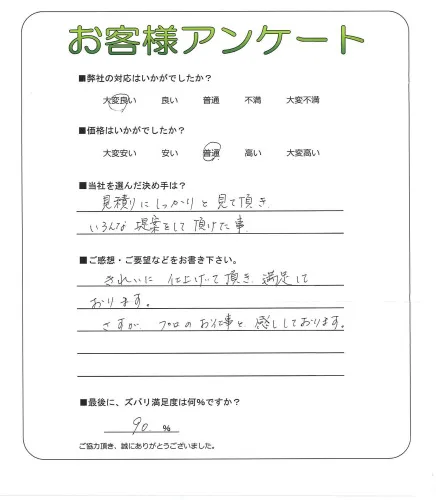 お客様アンケート
■弊社の対応はいかがでしたか？
大変良い 良い 普通 不満 大変不満
■価格はいかがでしたか？
大変安い 安い 普通 高い 大変高い
■当社を選んだ決め手は？
見積りにしっかりと見て頂き
いろんな提案をして頂けた事
■ご感想・ご要望などをお書き下さい。
きれいに仕上げて頂き満足して
おります。
さすがプロのお仕事と感じております。
■最後に、ズバリ満足度は何%ですか？
90 %
ご協力頂き、誠にありがとうございました。